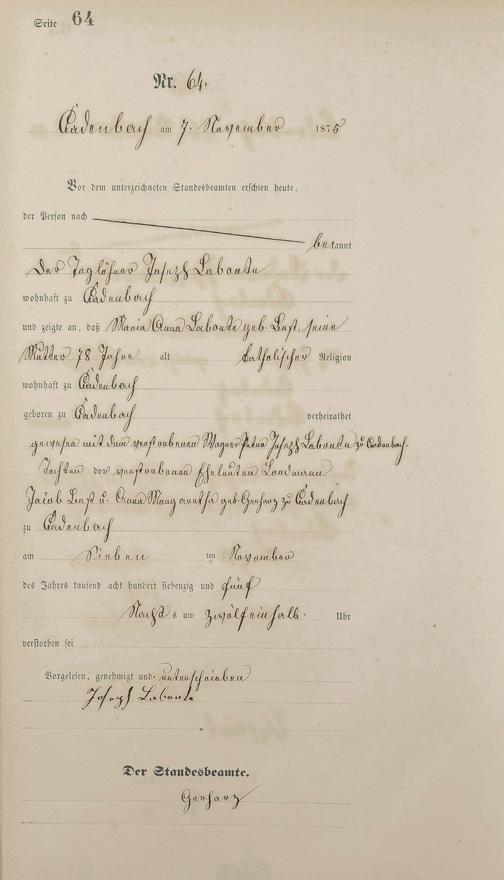 Seite 64
Nr. 64.
Cadenbach am 7. November 1875
Vor dem unterzeichneten Standesbeamten erschien heute,
der Person nach
bekannt
der Taglöhner Joseph Labonte
wohnhaft zu Cadenbach
und zeigte an, daß Maria Anna Labonte geb. seine
Mutter 78 Jahre alt katholischer Religion
wohnhaft zu Cadenbach
geboren zu Cadenbach verheirathet
gewesen mit dem verstorbenen Wagner Peter Joseph Labonte zu Cadenbach.
Tochter der verstorbenen Eheleuten Landmann
Jacob u. Anna Margaretha geb. Gerharz zu Cadenbach
zu Cadenbach
am Sieben ten November
des Jahres tausend acht hundert siebenzig und fünf
Nachts um zwölfeinhalb Uhr
verstorben sei
Vorgelesen, genehmigt und unterschrieben
Joseph Labonte
Der Standesbeamte.
Gerharz